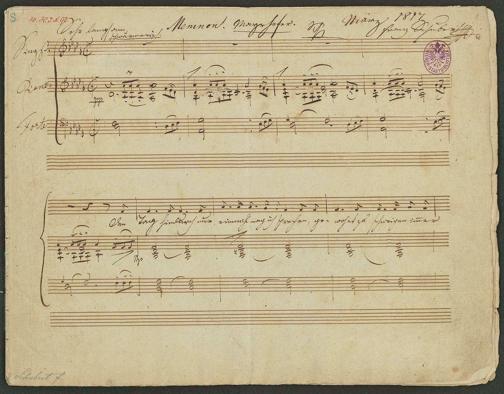 Sehr langsam, Memnon. Mayrhofer. März 1817
schwärmerisch Franz Schubert
Singst.
Piano
Forte
Den Tag hindurch nur einmal mag ich sprechen, gewohnt zu schweigen immer
Schubert F.